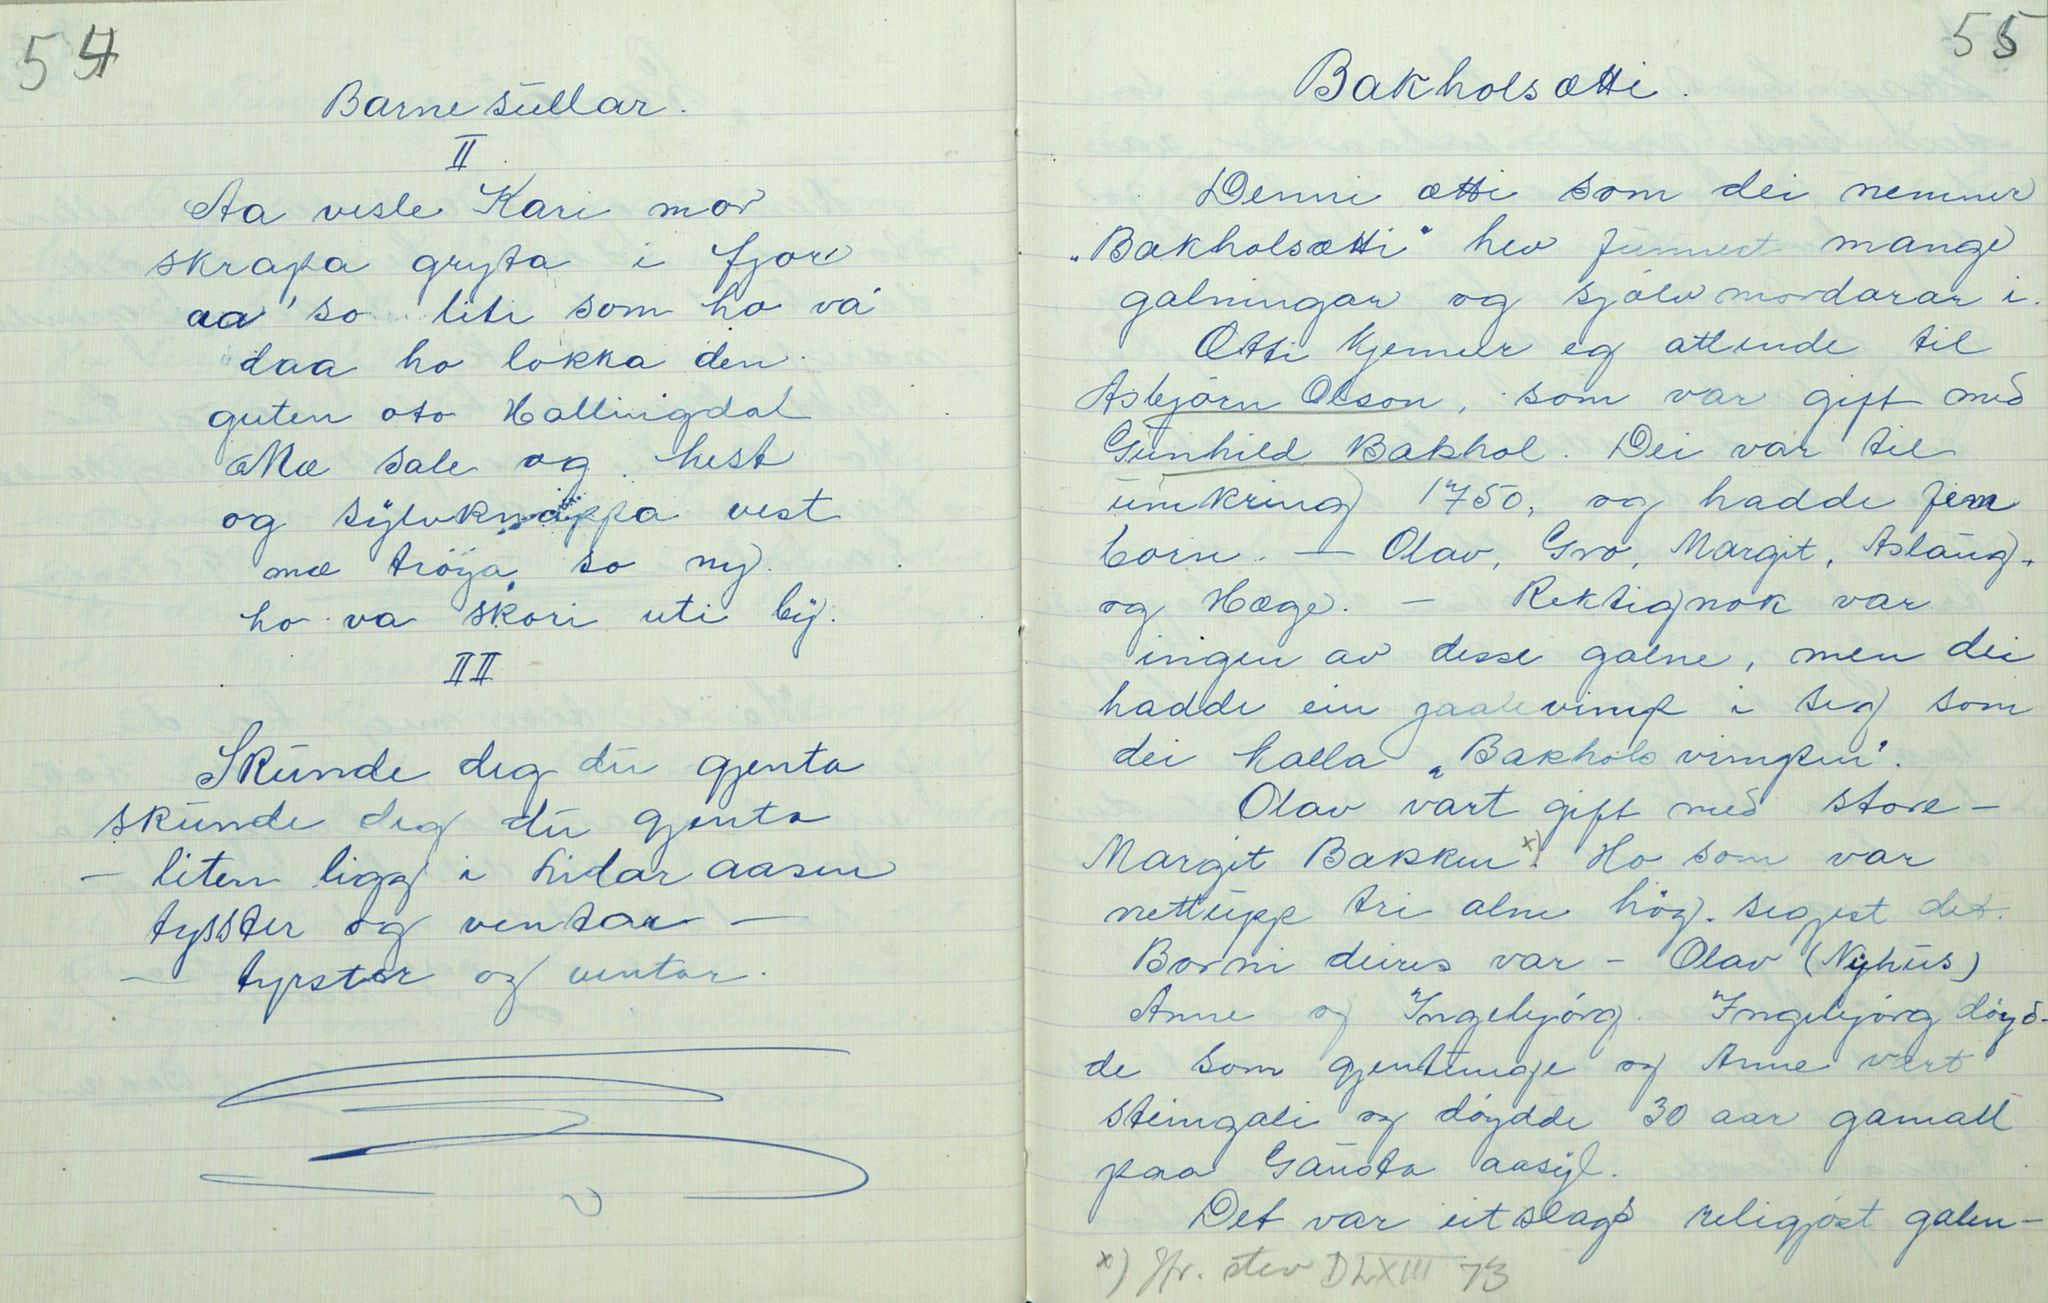 54
Barnesullar.
II
Aa vesle Kari mor
skrapa gryta i fjor
aa' so liti som ho va'
daa ho lokka den
guten oto Hallingdal
Mæ sale og hest
og sylvknappa vest
mæ tröya so ny
ho va skori uti by.
III
Skunde deg du gjenta
skunde deg du gjenta
– liten ligg i Lidaraasen
tysster og ventar –
– tysster og ventar.
55
Bakholsætti.
Denni ætti som dei nemner
„Bakholsætti" hev funnest mange
galningar og sjølvmordarar i.
Ætti kjenner eg attende til
Asbjørn Olson, som var gift med
Gunhild Bakhol. Dei var til
umkring 1750, og hadde fem
born. – Olav, Gro, Margit, Aslaug,
og Hæge. – Rektignok var
ingen av desse galne, men dei
hadde ein gaalevimp i seg som
dei kalla „Bakholsvimpen".
Olav vart gift med store-
Margit Bakken x). Ho som var
nettupp tri alne høg. segjest det.
Borni deires var – Olav (Nyhus)
Anne og Ingebjørg. Ingebjørg døyd-
de som gjentunge og Anne vart
steingali og døydde 30 aar gamall
paa Gausta aasyl.
Det var eit slags religjøst galen-
x) Jfr. stev DLXIII 73